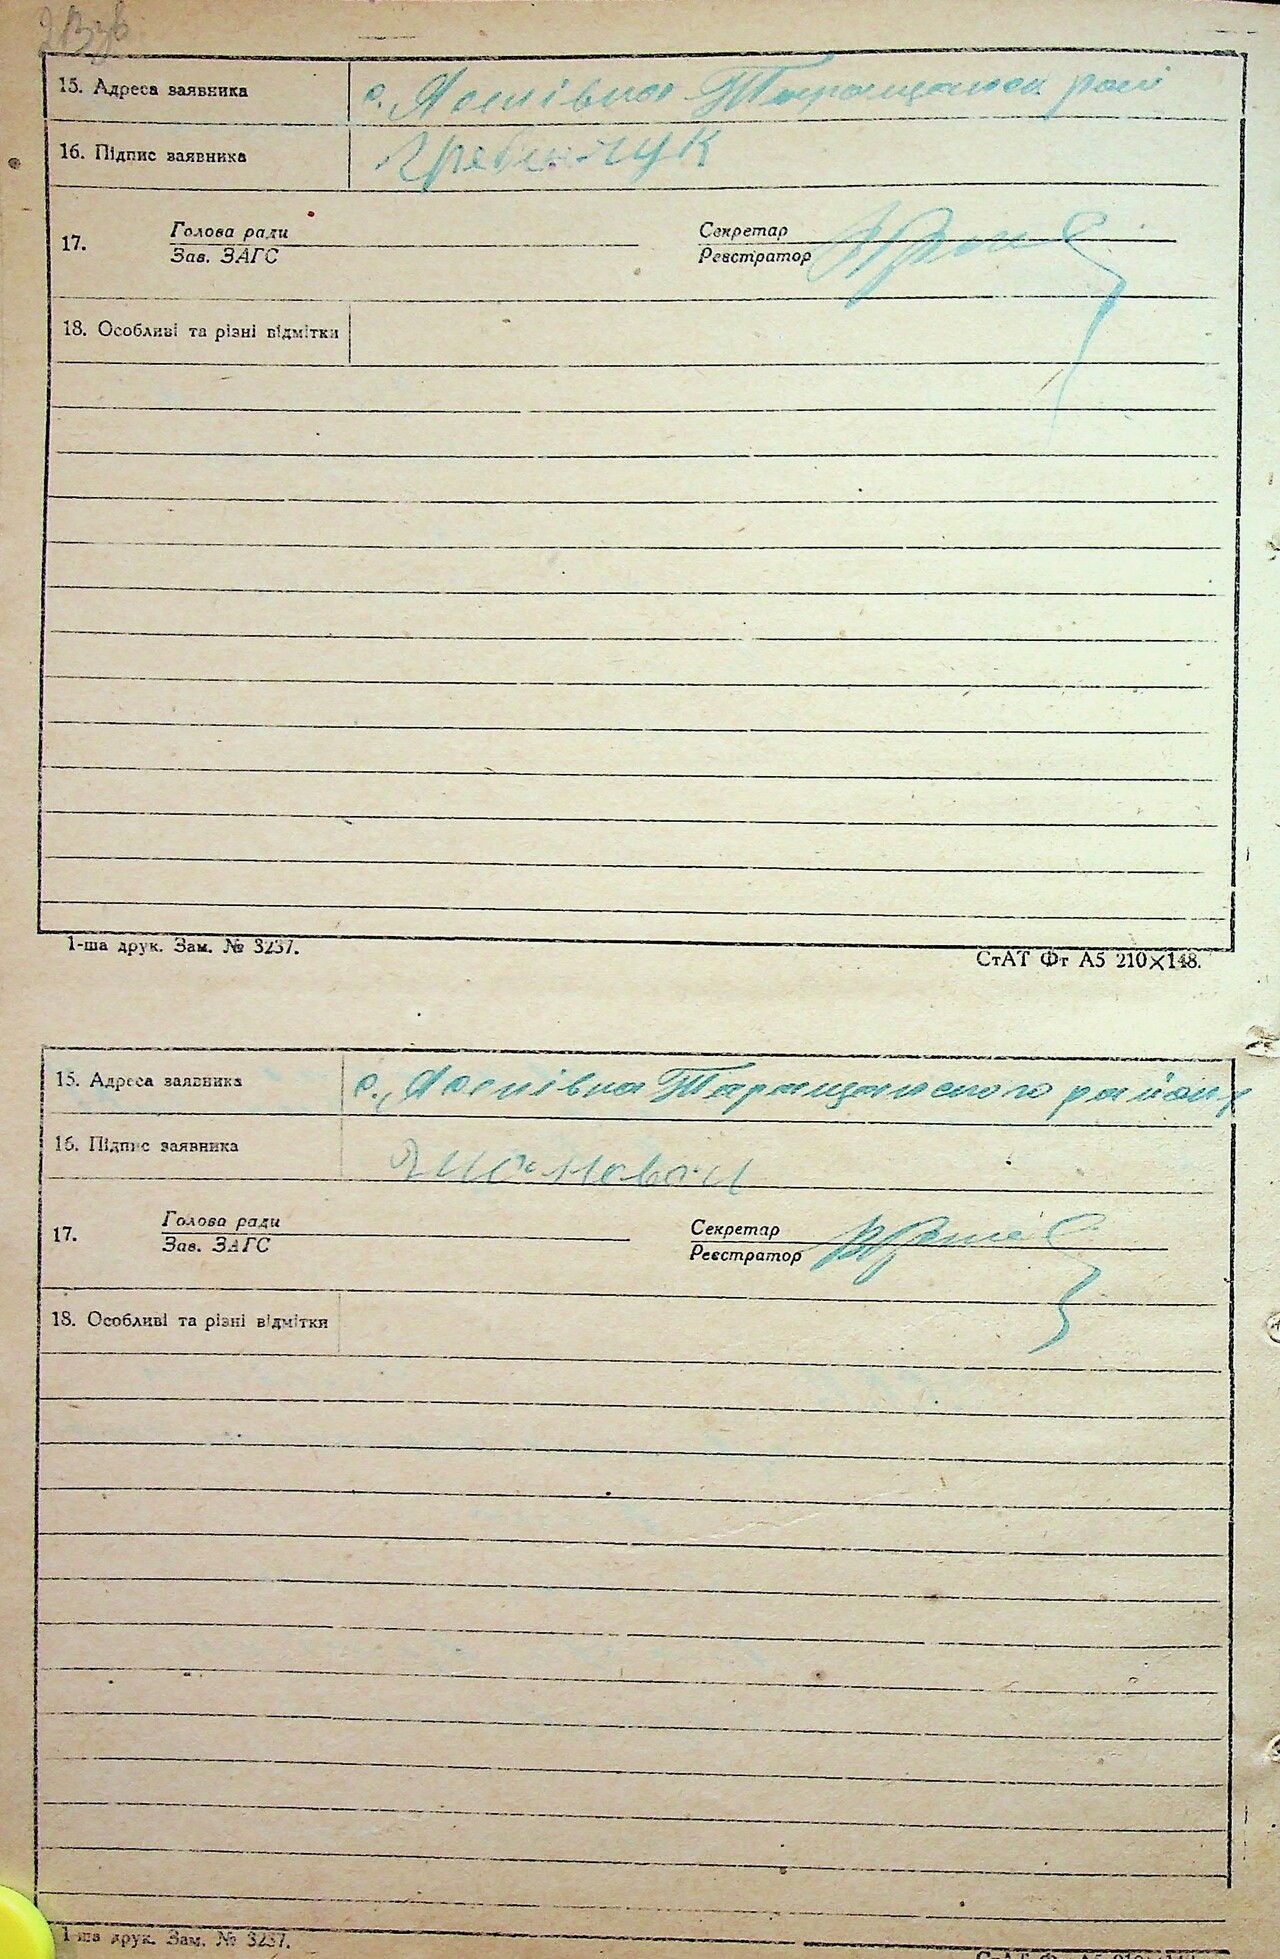 213зв
15. Адреса заявника с. Лосятівка Таращанськ рай
16. Підпис заявника Гребенчук
17. Голова ради Секретар
Зав. ЗАГС Реєстратор
18. Особливі та різні відмітки
1-ша друк. Зам. № 3237.
СтАТ Фт А5 210×148.
15. Адреса заявника с. Таращанського району
16. Підпис заявника
17. Голова ради Секретар
Зав. ЗАГС Реєстратор
18. Особливі та різні відмітки
1-ша друк. Зам. № 3237.